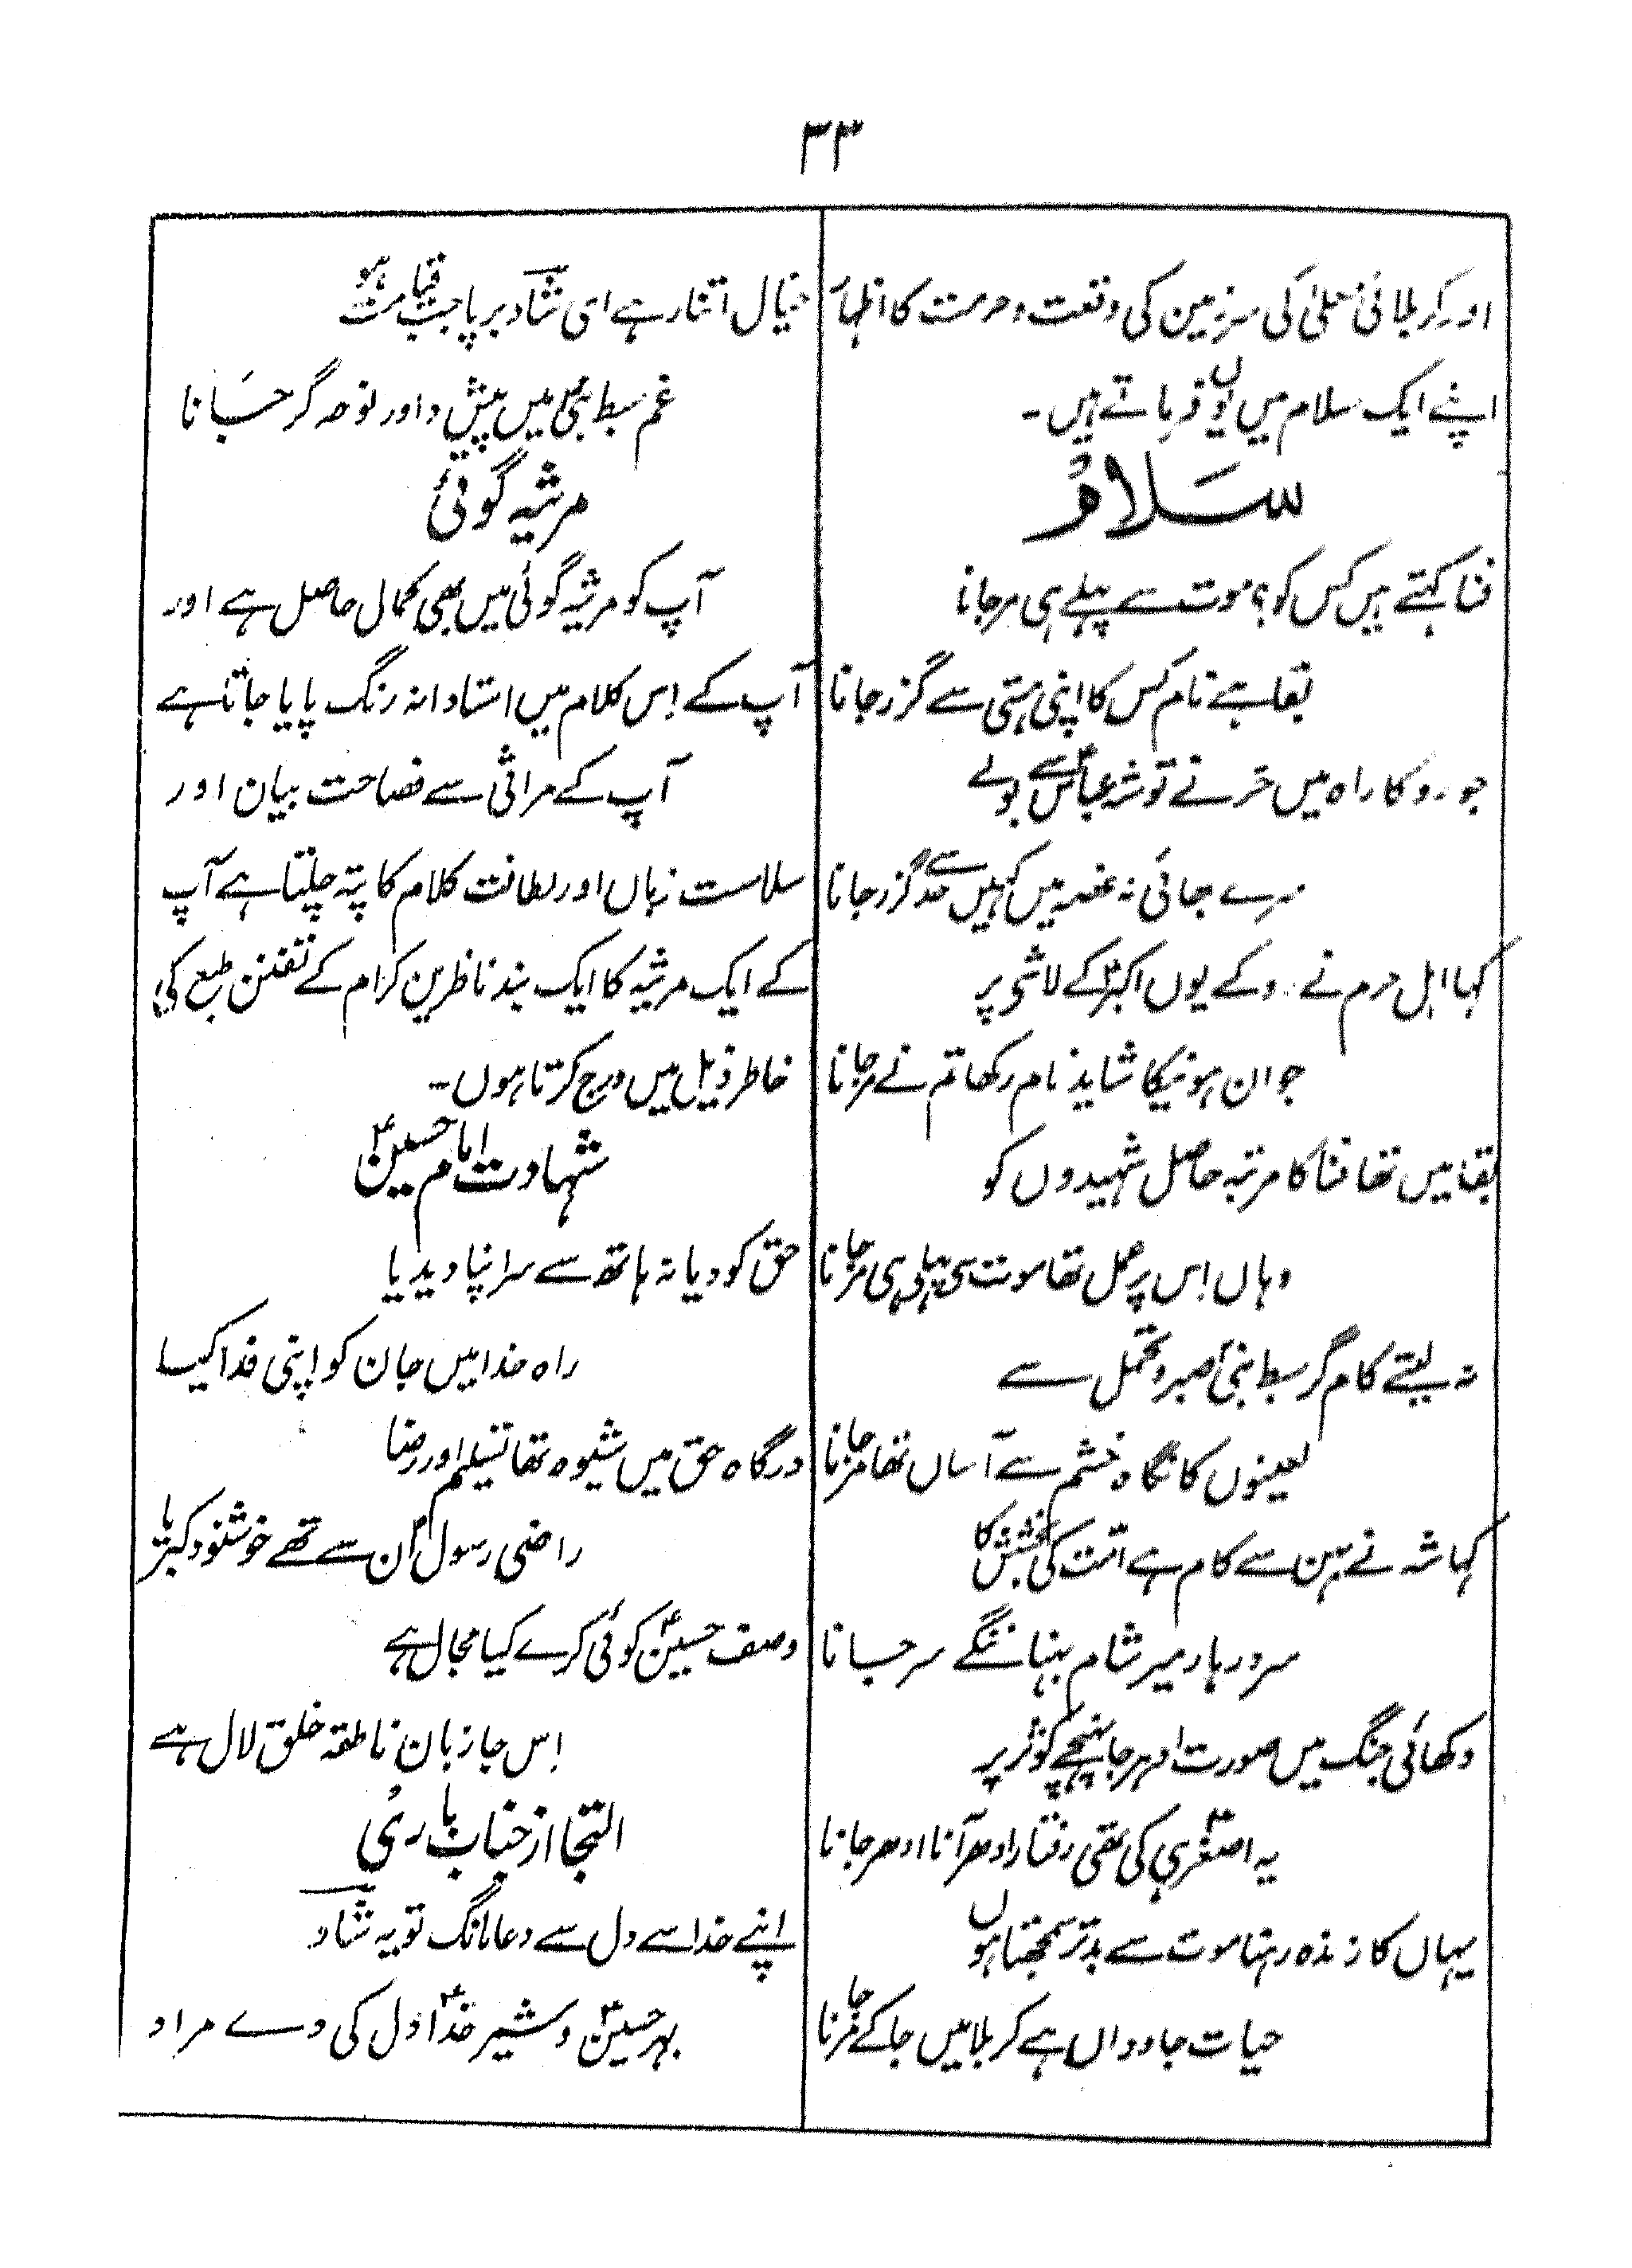 ۳۳
اور کربلائی معلیٰ کی سرزمین کی وقعت و حرمت کا اظہار
اپنے ایک سلام میں یوں فرماتے ہیں۔
سَلامُ
فنا کہتے ہیں کس کو؟ موت سے پہلے ہی مرجانا
بقا ہے نام کس کا اپنی ہستی سے گزر جانا
جو روکا راہ میں حر نے تو شہ عباسؑ سے بولے
مرے بھائی نہ غصہ میں کہیں حد سے گزر جانا
کہا اہل حرم نے روکے یوں اکبرؑ کے لاشے پر
جوان ہونیکا شاید نام رکھا تم نے مرجانا
بقا میں تھا فنا کا مرتبہ حاصل شہیدوں کو
وہاں اس پر عمل تھا موت سی پہلی ہی مرجانا
نہ لیتے کام گر سبط نبیؐ صبر و تحمل سے
لعینوں کا نگاہ خشم سے آساں تھا مرجانا
کہا شہ نے ہمن سے کام ہے امت کی بخشش کا
سر دربار میر شام بہنا ننگے سر جانا
دکھائی جنگ میں صورت ادہر جا پہنچے کوثر پر
یہ اصغرؑ ہی کی تھی رفتار ادھر آنا ادھر جانا
یہاں کا زندہ رہنا موت سے بدتر سمجھتا ہوں
حیات جاوداں ہے کربلا میں جا کے مرجانا
خیال اتنا رہے ای شاد برپا جب قیامت ہو
غم سبط نبیؐ میں پیش داور نوحہ گر جانا
مرثیہ گوئی
آپ کو مرثیہ گوئی میں بھی کمال حاصل ہے اور
آپ کے اِس کلام میں استادانہ رنگ پایا جاتا ہے
آپ کے مراثی سے فصاحت بیان اور
سلاست زباں اور لطافت کلام کا پتہ چلتا ہے آپ
کے ایک مرثیہ کا ایک بند ناظرین کرام کے تفنن طبع کی
خاطر ذیل میں درج کرتا ہوں۔
شہادت امام حسینؑ
حق کو دیا نہ ہاتھ سے سر اپنا دیدیا
راہ خدا میں جان کو اپنی فدا کیا
درگاہ حق میں شیوہ تھا تسلیم اور رضا
راضی رسولؐ ان سے تھے خوشنود کبریا
وصف حسینؑ کوئی کرے کیا مجال ہے
اِس جا زبان ناطقہ خلق لال ہے
التجا از جناب باری
اپنے خدا سے دل سے دعا مانگ تو یہ شاد
بہر حسینؑ و شیر خداؑ دل کی دے مراد